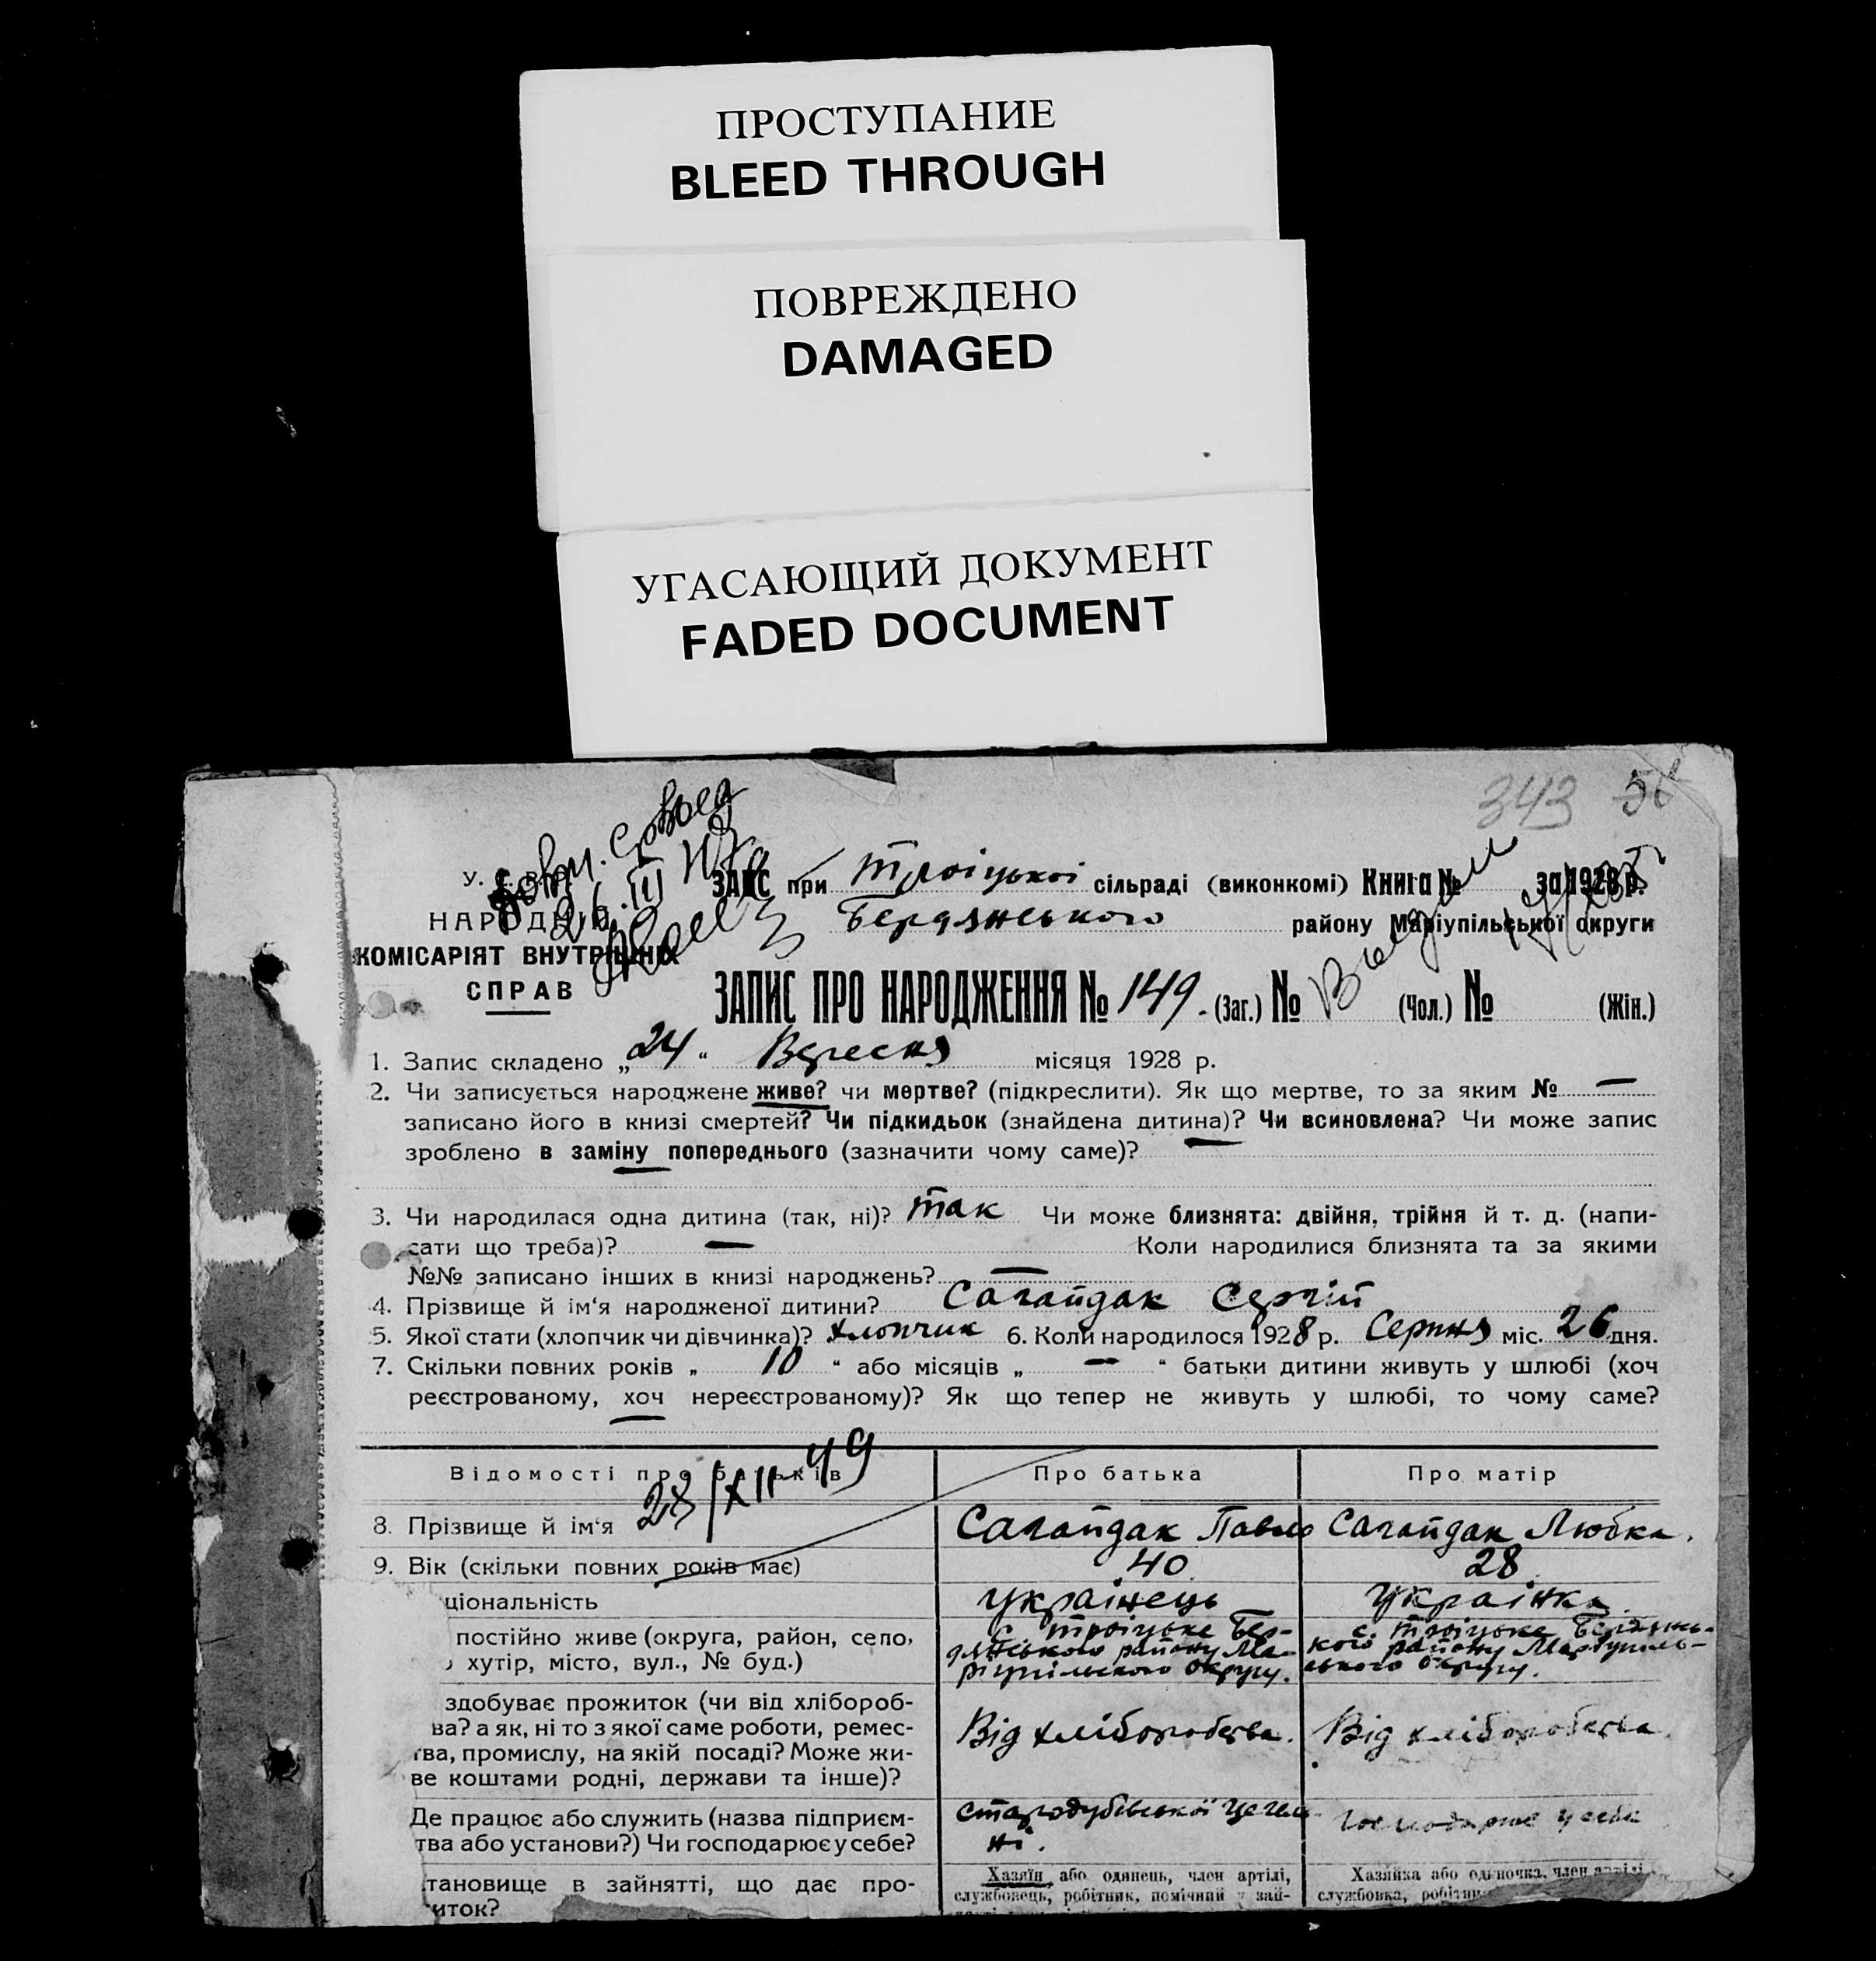 ПРОСТУПАНИЕ
BLEED THROUGH
ПОВРЕЖДЕНО
DAMAGED
УГАСАЮЩИЙ ДОКУМЕНТ
FADED DOCUMENT
343
У.
НАРОДНІЙ
КОМІСАРІЯТ ВНУТРІШНІХ
СПРАВ
ЗАГС при Троіцькоі сільраді (виконкомі) Книга № за 1928 р.
Бердянського району Маріупільської округи
ЗАПИС ПРО НАРОДЖЕННЯ № 149. (Заг.) № (Чол.) № (Жін.)
1. Запис складено „24“ Вересня місяця 1928 р.
2. Чи записується народжене живе? чи мертве? (підкреслити). Як що мертве, то за яким № —
записано його в книзі смертей? Чи підкидьок (знайдена дитина)? Чи всиновлена? Чи може запис
зроблено в заміну попереднього (зазначити чому саме)? —
3. Чи народилася одна дитина (так, ні)? так Чи може близнята: двійня, трійня й т. д. (напи-
сати що треба)? — Коли народилися близнята та за якими
№№ записано інших в книзі народжень? —
4. Прізвище й ім‘я народженої дитини? Сагайдак Сергій
5. Якої стати (хлопчик чи дівчинка)? Хлопчик 6. Коли народилося 1928 р. Серпня міс. 26 дня.
7. Скільки повних років „ 10 “ або місяців „ — “ батьки дитини живуть у шлюбі (хоч
реєстрованому, хоч нереєстрованому)? Як що тепер не живуть у шлюбі, то чому саме?
Відомості про батьків Про батька Про матір
28/XII-49
8. Прізвище й ім‘я Сагайдак Павло Сагайдак Любка.
9. Вік (скільки повних років має) 40 28
ціональність Украінець Украінка.
постійно живе (округа, район, село,
хутір, місто, вул., № буд.)
с. Троіцьке Бер-
дянського району Ма-
ріупільского округу.
с. Троіцьке Бердянсь-
кого району Маріупіль-
ського округу.
здобуває прожиток (чи від хлібороб-
ва? а як, ні то з якої саме роботи, ремес-
тва, промислу, на якій посаді? Може жи-
ве коштами родні, держави та інше)?
Від хліборобства. Від хліборобства.
Де працює або служить (назва підприєм-
тва або установи?) Чи господарює у себе?
Господарює у себе
тановище в зайнятті, що дає про-
иток?
Хазяїн або одинець, член артілі,
службовець, робітник, помічний у зай-
Хазяйка або одиночка, член артілі
службовка,